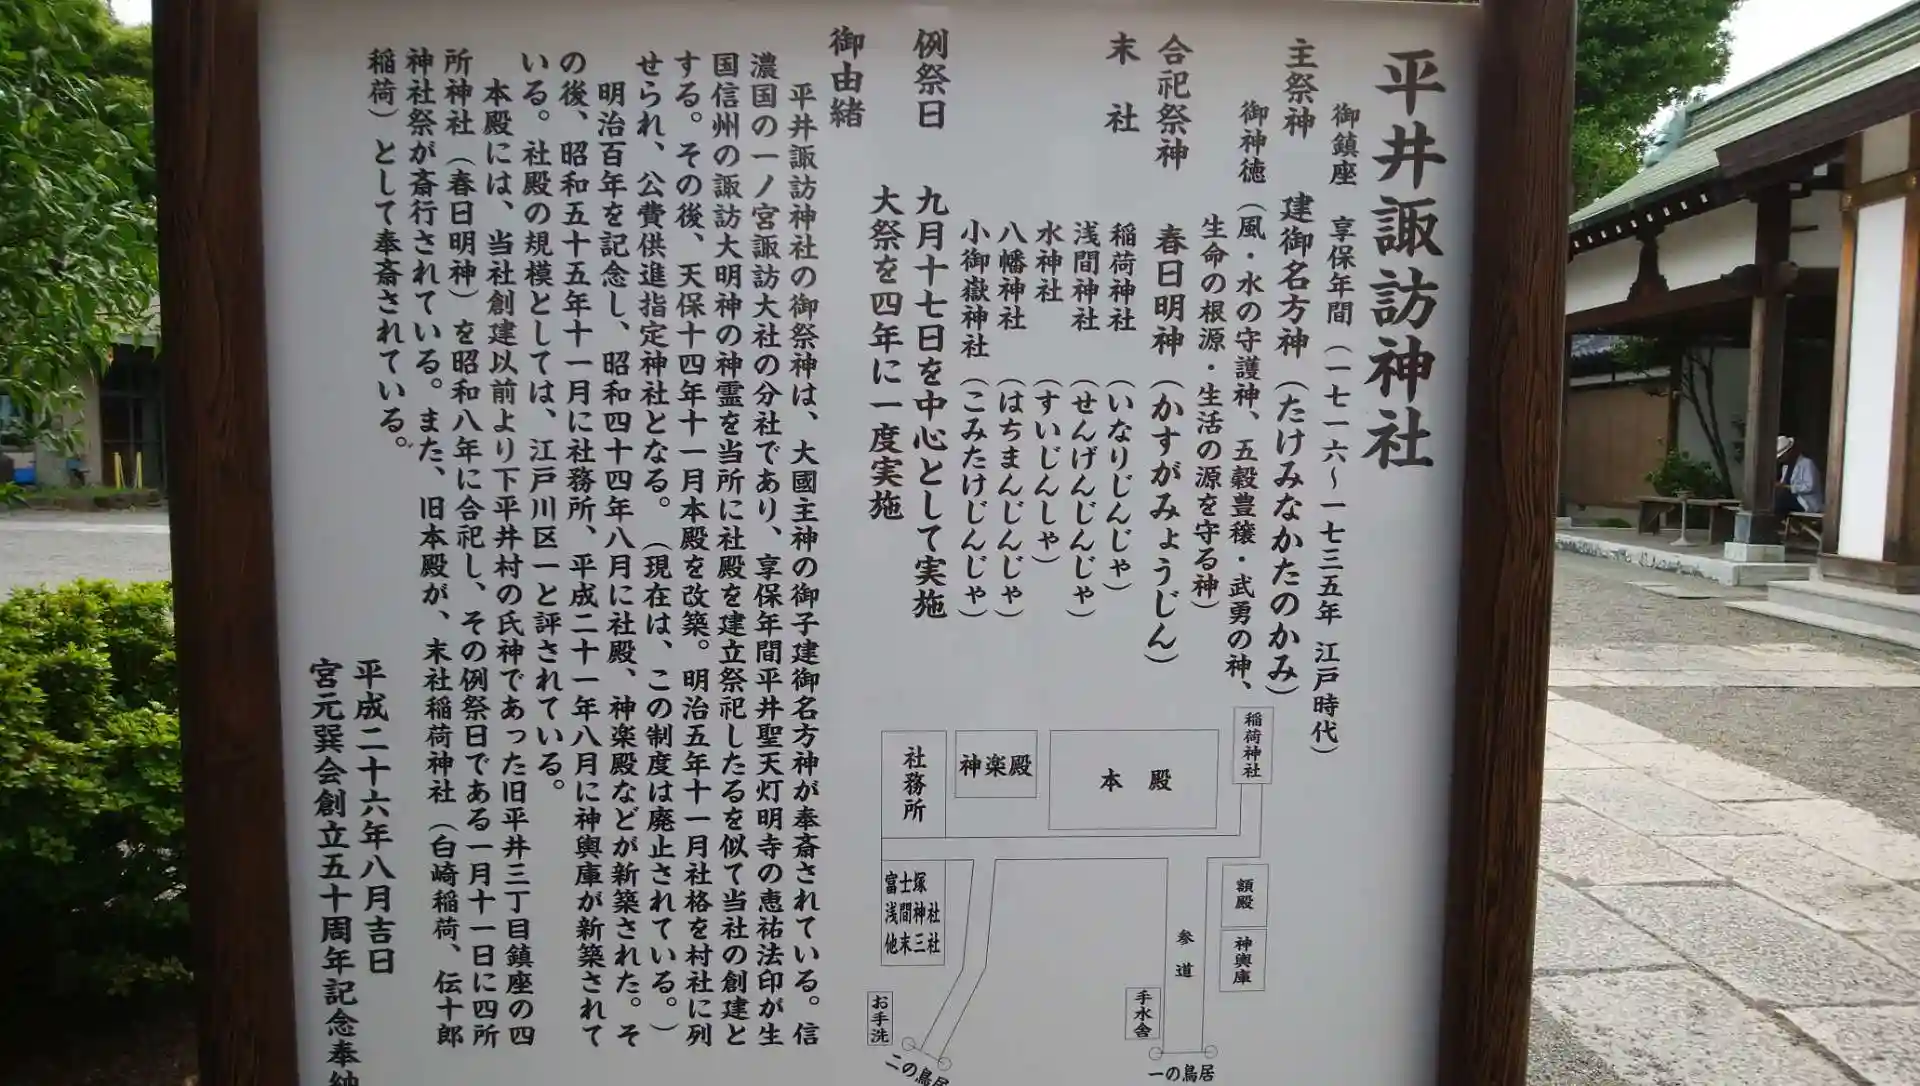 平井諏訪神社
御鎮座 享保年間(一七一六～一七三五年 江戸時代)
主祭神 建御名方神(たけみなかたのかみ)
御神徳(風・水の守護神、五穀豊穣・武勇の神、
生命の根源・生活の源を守る神)
合祀祭神 春日明神(かすがみょうじん)
末 社 稲荷神社(いなりじんじゃ)
浅間神社(せんげんじんじゃ)
水神社(すいじんしゃ)
八幡神社(はちまんじんじゃ)
小御嶽神社(こみたけじんじゃ)
例祭日 九月十七日を中心として実施
大祭を四年に一度実施
御由緒
平井諏訪神社の御祭神は、大國主神の御子建御名方神が奉斎されている。信
濃国の一ノ宮諏訪大社の分社であり、享保年間平井聖天灯明寺の恵祐法印が生
国信州の諏訪大明神の神霊を当所に社殿を建立祭祀したるを似て当社の創建と
する。その後、天保十四年十一月本殿を改築。明治五年十一月社格を村社に列
せられ、公費供進指定神社となる。(現在は、この制度は廃止されている。)
明治百年を記念し、昭和四十四年八月に社殿、神楽殿などが新築された。そ
の後、昭和五十五年十一月に社務所、平成二十一年八月に神輿庫が新築されて
いる。社殿の規模としては、江戸川区一と評されている。
本殿には、当社創建以前より下平井村の氏神であった旧平井三丁目鎮座の四
所神社(春日明神)を昭和八年に合祀し、その例祭日である一月十一日に四所
神社祭が斎行されている。また、旧本殿が、末社稲荷神社(白崎稲荷、伝十郎
稲荷)として奉斎されている。
平成二十六年八月吉日
宮元巽会創立五十周年記念奉納
稲荷神社
本 殿
神楽殿
社務所
額殿
神輿庫
参道
手水舎
一の鳥居
富士塚
浅間神社
他末三社
お手洗
二の鳥居